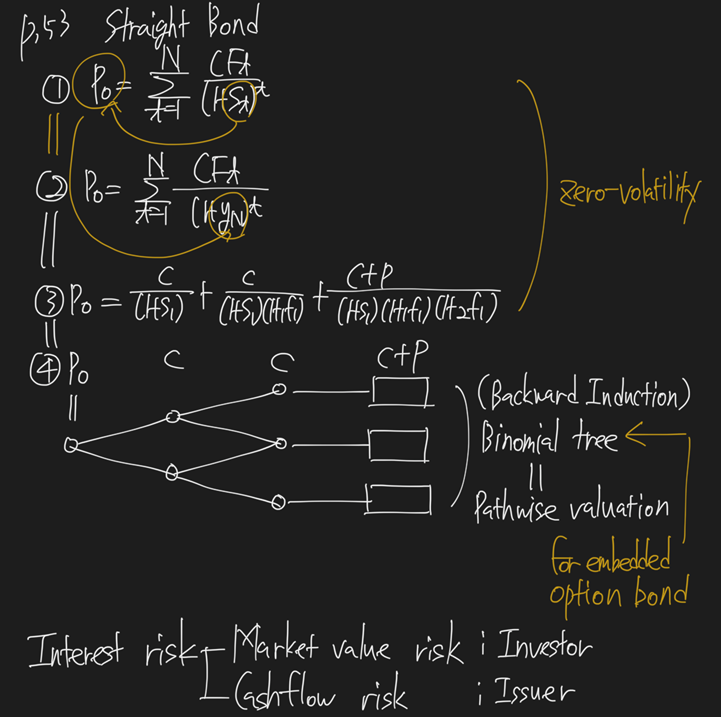 p.53 Straight Bond
① P₀ = N Σ t=1 CFt / (1+St)^t
||
② P₀ = N Σ t=1 CFt / (1+yN)^t
zero-volatility
||
③ P₀ = C / (1+S₁) + C / (1+S₁)(1+₁f₁) + C+P / (1+S₁)(1+₁f₁)(1+₂f₁)
||
④ P₀ C C C+P
||
(Backward Induction)
Binomial tree
||
Pathwise valuation
for embedded
option bond
Interest risk Market value risk ; Investor
Cashflow risk ; Issuer